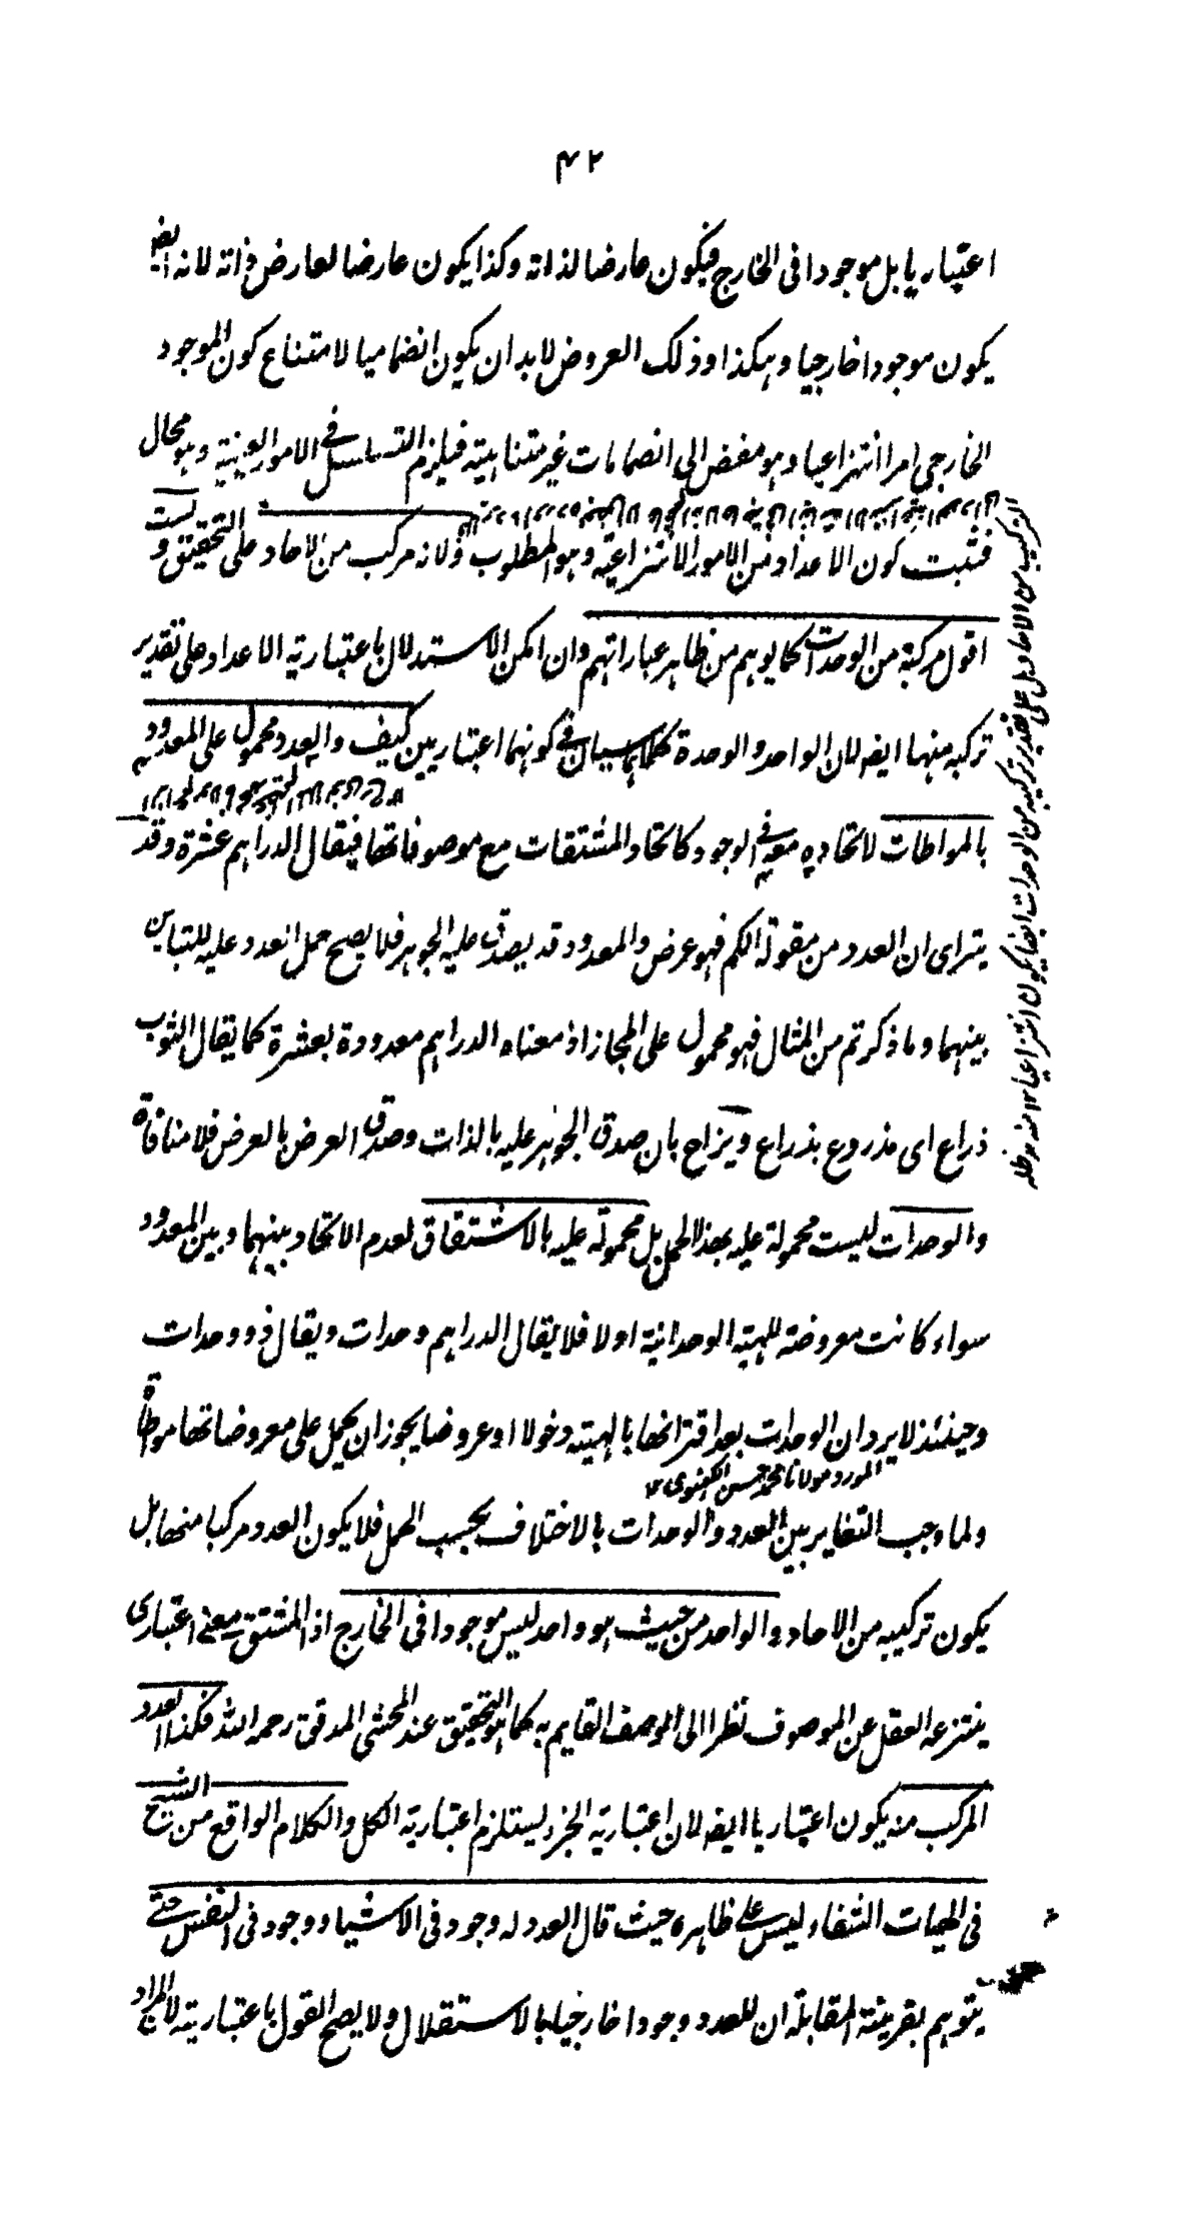 ۴۲
اعتباريا بل موجودا فى الخارج فيكون عارضا لذاته وكذا يكون عارضا لعارض ذاته لانه ايضا
يكون موجودا خارجيا وهكذا وذلك العروض لابد ان يكون انضماميا لامتناع كون الموجود
الخارجى امرا انتزاعيا وهو مفض الى انضمامات غير متناهية فيلزم التسلسل فى الامور العينية وهو محال
فثبت كون الاعداد من الامور الانتزاعية وهو المطلوب ولانه مركب من الاحاد على التحقيق وليست
اقول مركبة من الوحدات كما يوهم من ظاهر عباراتهم وان امكن الاستدلال باعتبارية الاعداد على تقدير
تركبه منها ايضا لان الواحد والوحدة كلاهما سيان فى كونهما اعتباريين كيف والعدد محمول على المعدود به
بالمواطات لاتحاده معه فى الوجود كاتحاد المشتقات مع موصوفاتها فيقال الدراهم عشرة وقد
يتراى ان العدد من مقولة الكم فهو عرض والمعدود قد يصدق عليه الجوهر فلا يصح حمل العدد عليه للتباين
بينهما وما ذكرتم من المثال فهو محمول على المجاز اذ معناه الدراهم معدودة بعشرة كما يقال الثوب
ذراع اى مذروع بذراع ويزاح بان صدق الجوهر عليه بالذات وصدق العرض بالعرض فلا منافاة
والوحدات ليست محمولة عليه بهذا الحمل بل محمولة عليه بالاشتقاق لعدم الاتحاد بينهما وبين المعدود
سواء كانت معروضة للهيئة الوحدانية اولا فلا يقال الدراهم وحدات ويقال ذو وحدات
وحينئذ لا يرد ان الوحدات بعد اقترانها بالهيئة دخولا او عروضا يجوز ان يحمل على معروضاتها مواطاة
المورد مولانا محمد حسن الكهنوى ١٢
ولما وجب التغاير بين العدد والوحدات بالاختلاف بحسب الحمل فلا يكون العدد مركبا منها بل
يكون تركيبه من الاحاد والواحد من حيث هو واحد ليس موجودا فى الخارج اذ المشتق معنى اعتبارى
ينتزعه العقل عن الموصوف نظرا الى الوصف القايم به كما هو التحقيق عند المحشى المدقق رحمه الله فكذا العدد
المركب منه يكون اعتباريا ايضا لان اعتبارية الجزء ليستلزم اعتبارية الكل والكلام الواقع من الشيخ
فى الهيات الشفاء ليس على ظاهره حيث قال العدد له وجود فى الاشياء ووجود فى النفس حتى
يتوهم بقرينة المقابلة ان للعدد وجودا خارجيا بالاستقلال ولا يصح القول باعتباريته لان المراد
التركيب من الاحاد بل على تقدير تركيبه من الوحدات ايضا يكون انتزاعيا ١٢ منه مد ظله